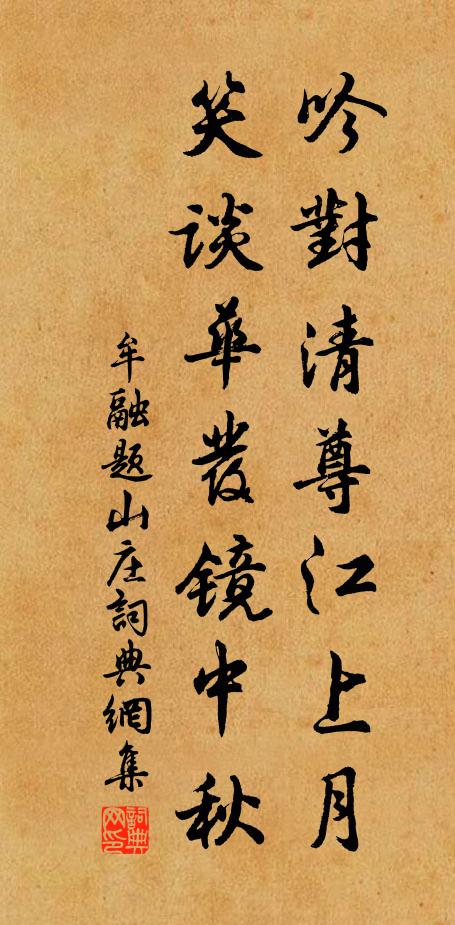 吟對清尊江上月
笑談華發鏡中秋
牟融題山庄詞典網集
詞典网印